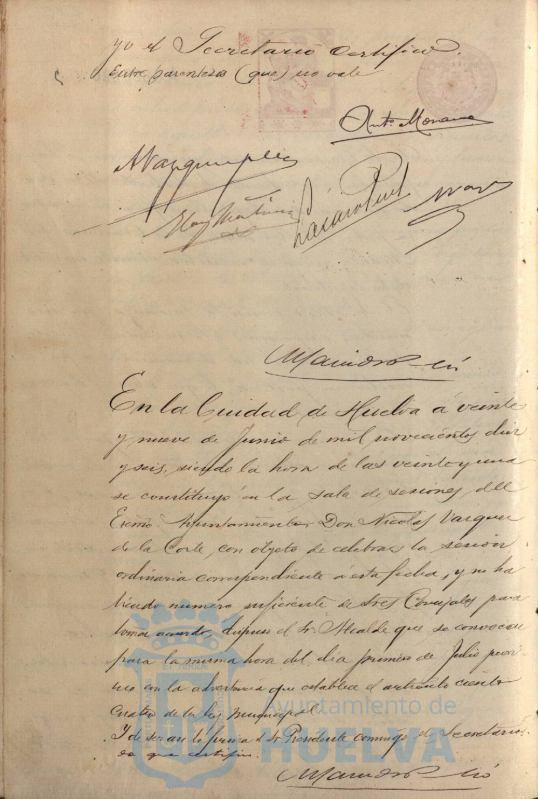 yo el Secretario certifico.
Entre parentesis (que) no vale
Anto Morano
Lázaro Ruiz
En la Ciudad de Huelva á veinte
y nueve de Junio de mil novecientos diez
y seis, siendo la hora de las veinte y una
se constituyó en la sala de sesiones del
Excmo Ayuntamiento Don Nicolás Vazquez
de la Corte con objeto de celebrar la sesión
ordinaria correspondiente á esta fecha, y no ha
biendo numero suficiente de Sres Concejales para
tomar acuerdo, dispuso el Sr. Alcalde que se convocara
para la misma hora del dia primero de Julio proxi
mo con la advertencia que establece el articulo ciento
cuatro de la ley municipal.
Y de ser asi lo firma el Sr Presidente conmigo el Secretario
de que certifico.
Ayuntamiento de
HUELVA